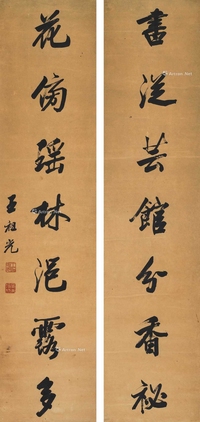 書從芸館分香祕
花傍瑤林浥露多
王祖光